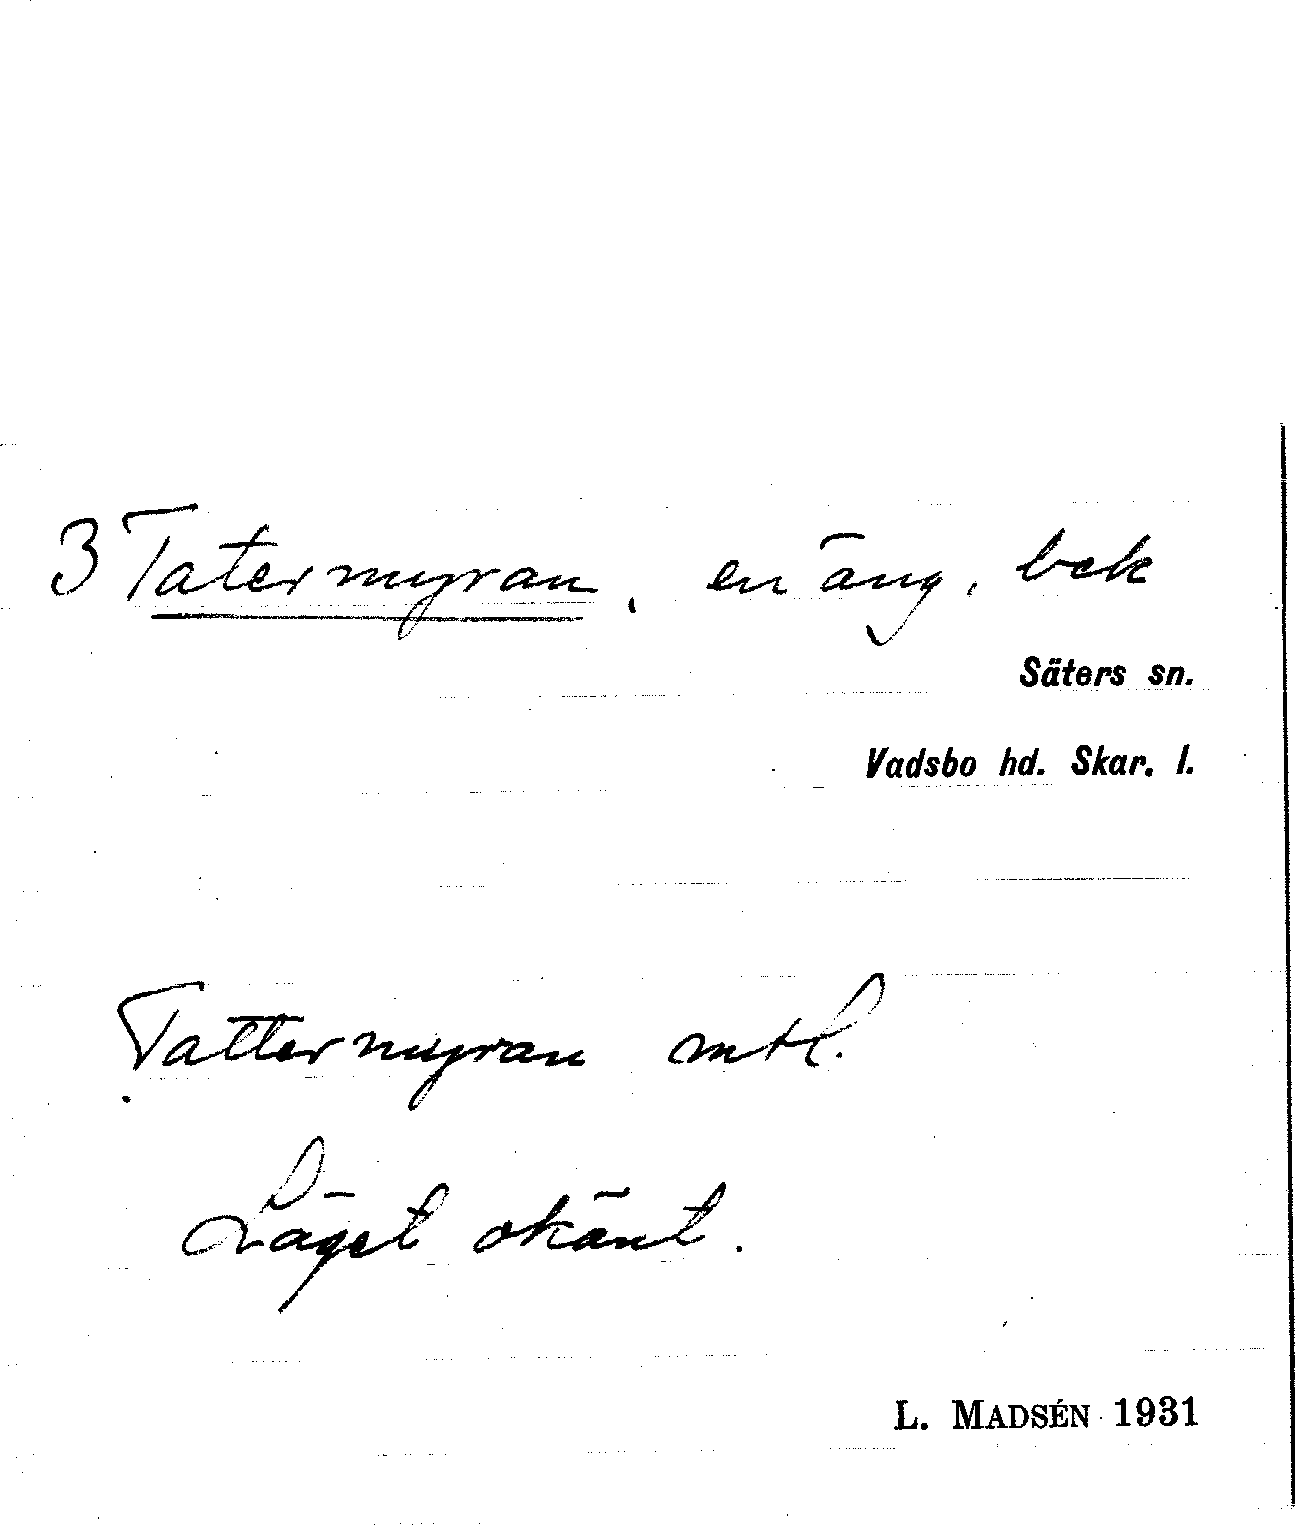 3 Tatermyran, en äng, bek
Säters sn.
Vadsbo hd. Skar. l.
Tattermyran mtl.
Läget okänt.
L. MADSÉN 1931